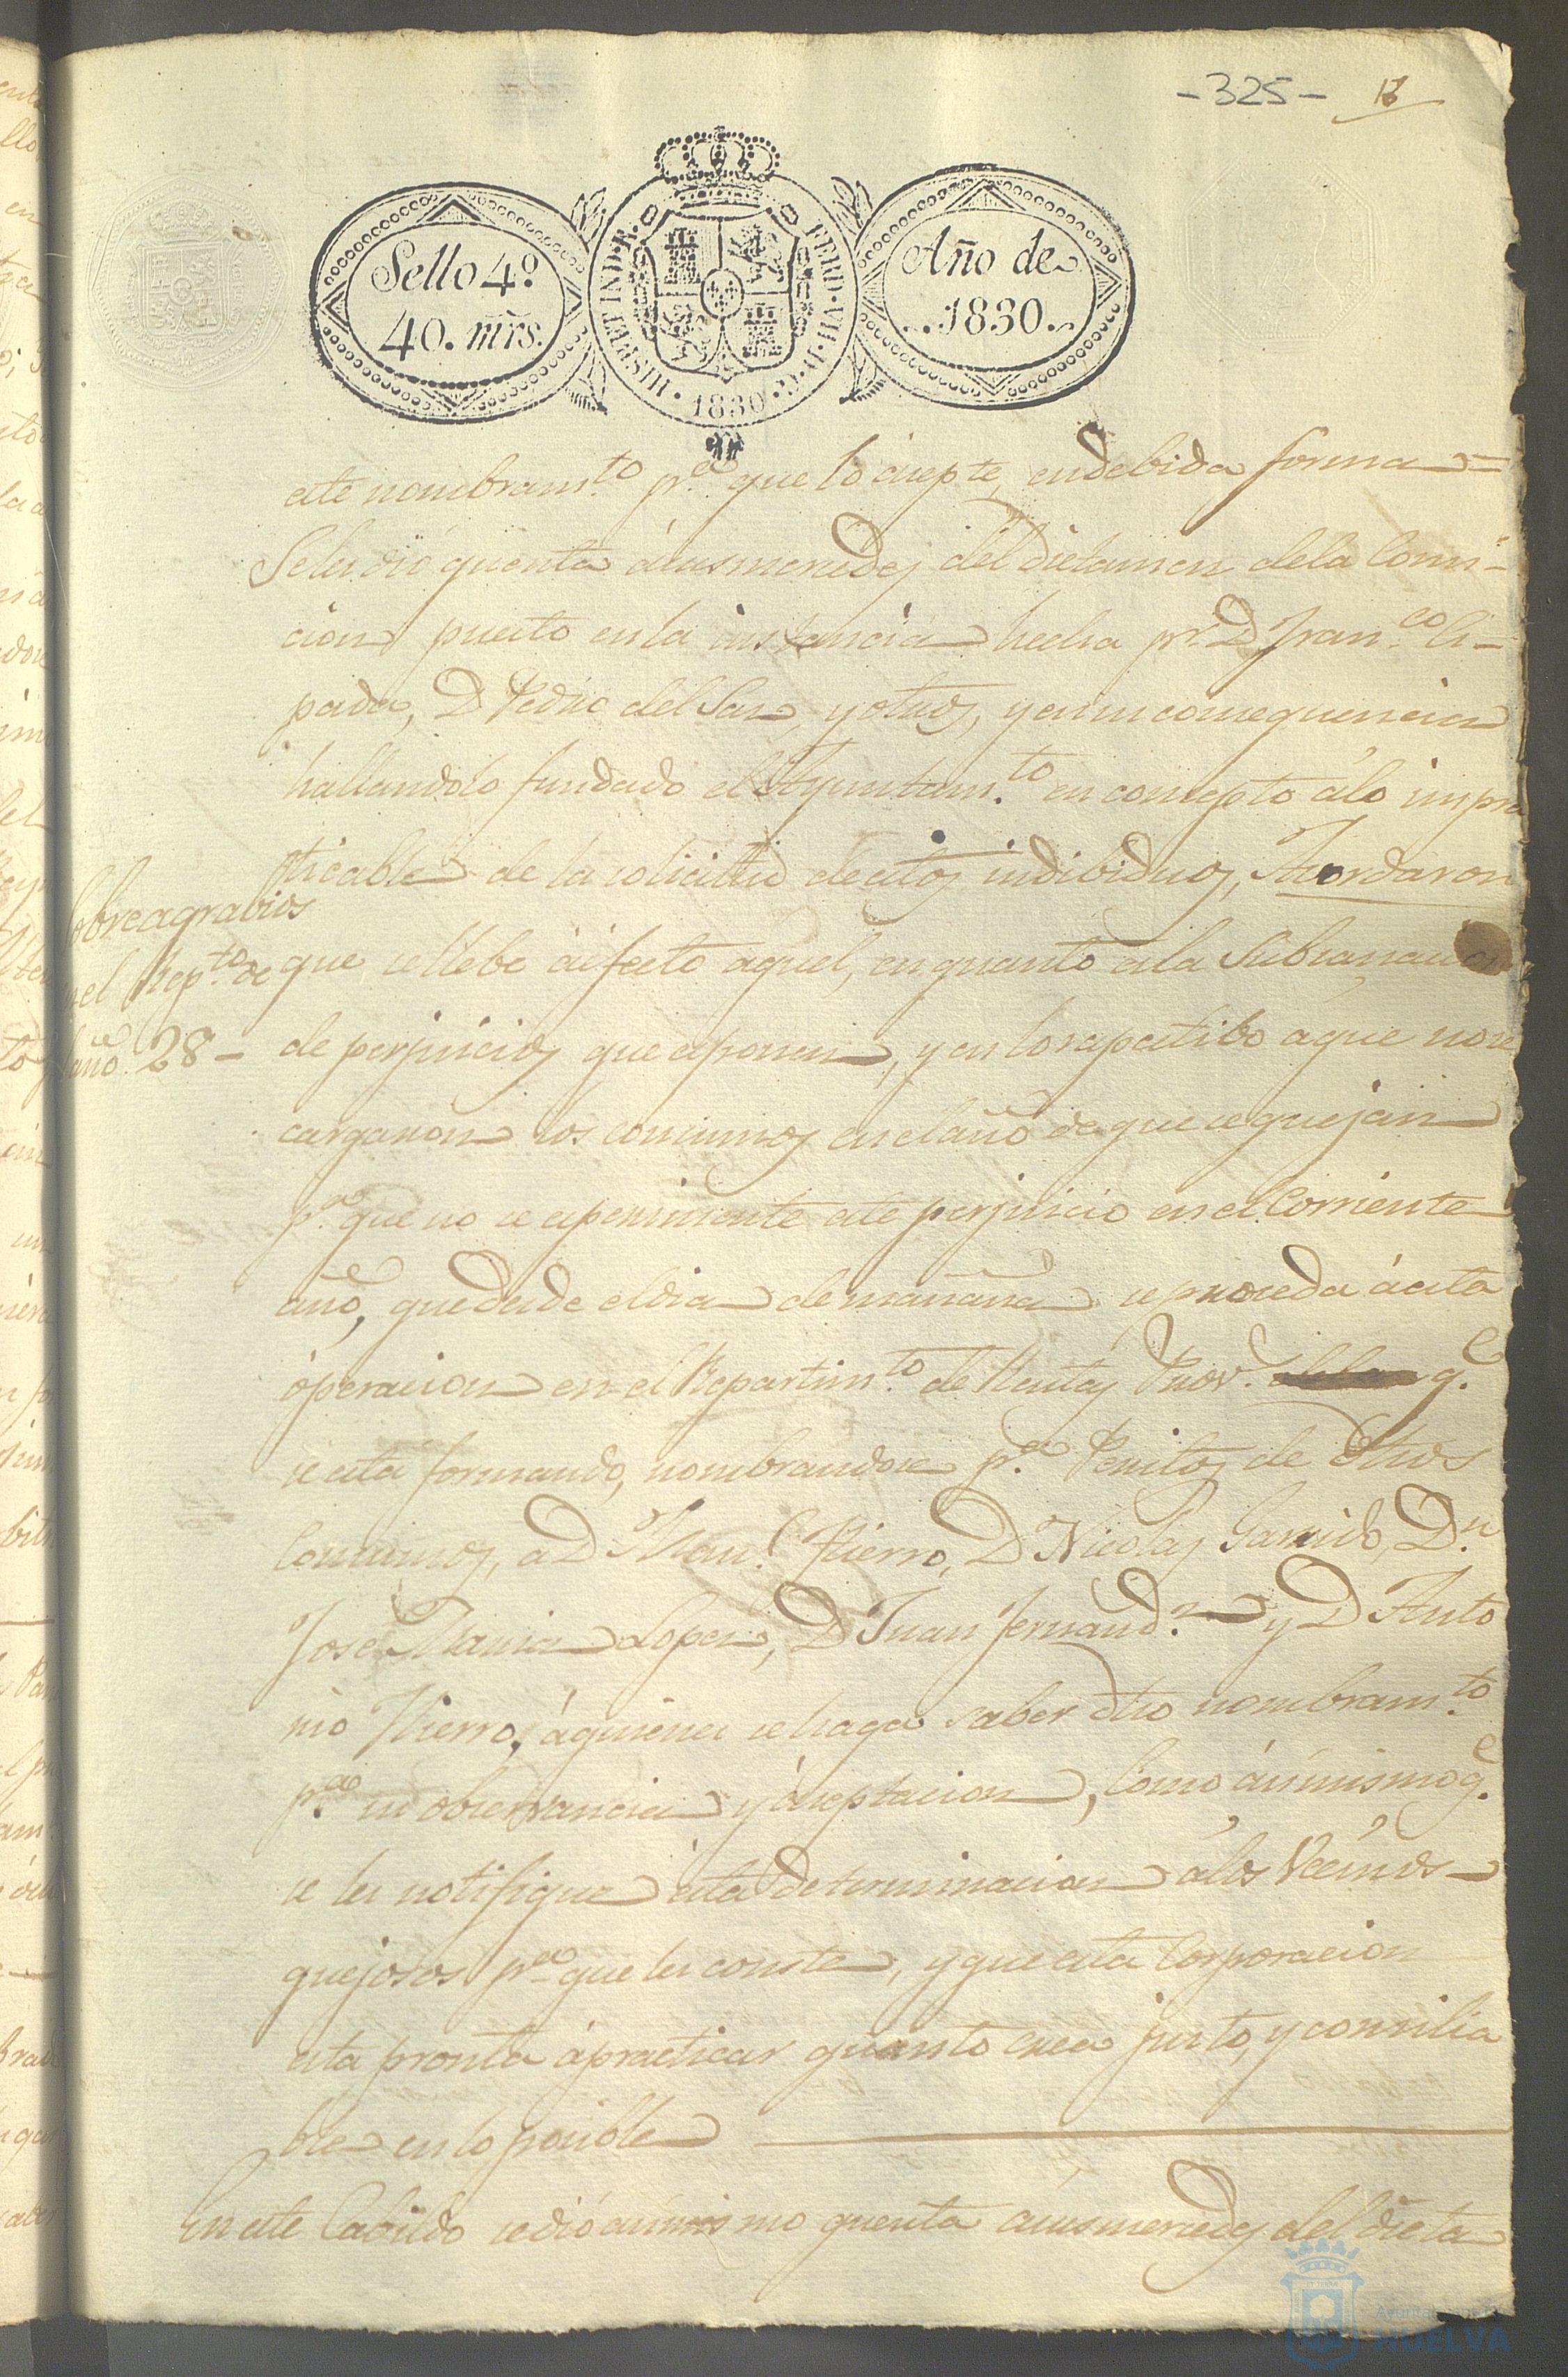 -325- 17
Sello 4º
40. mrs.
HISP. ET IND. R. FERD. VII. D. G. 1830
Año de
1830.
este nombram.to p.a que lo acepte, en debida forma =
Seles dió quenta á sus mercedes del dictamen dela Comi-
cion puesto en la instancia hecha p.r D. Fran.co Ces-
pada, D. Pedro del Saz, y otros, y en su consequencia
hallandolo fundado el Ayuntam.to en consepto álo impra
cticable de la solicitud de estos indibiduos, Acordaron
Sobre agrabios
en el Rep.to de
año 28-
que se llebe áefecto aquel, en quanto ála Subsanacion
de perjuicios que esponen, y en lo respectibo áque no se
cargaron los consumos en el año de que se quejan
p.a que no se esperimente este perjuicio en el Corriente
año, que desde el dia de mañana se proceda á esta
operacion en el Repartim.to de Rentas Prov.s q.e
se esta formando, nombrandose p.a Peritos de dhos
Consumos, a D Man.l Hierro, D Nicolas Garrido, D.n
Jose Maria Lopez, D Juan Fernand.z y D Anto
nio Hierro, áquienes se haga saber dho nombram.to
p.a su obserbancia y áceptacion, Como ásimismo q.e
se les notifique esta determinacion álos Vecinos
quejosos p.a que les conste, y que esta Corporacion
esta pronta ápracticar quanto crea justo, y consilia
ble en lo posible
En este Cabildo se dió ásimismo quenta ásus mercedes del dicta
Ayuntamiento de
HUELVA